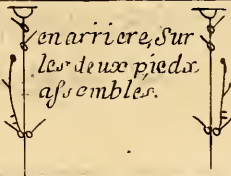 en arriere, Sur
les deux pieds
assembles.